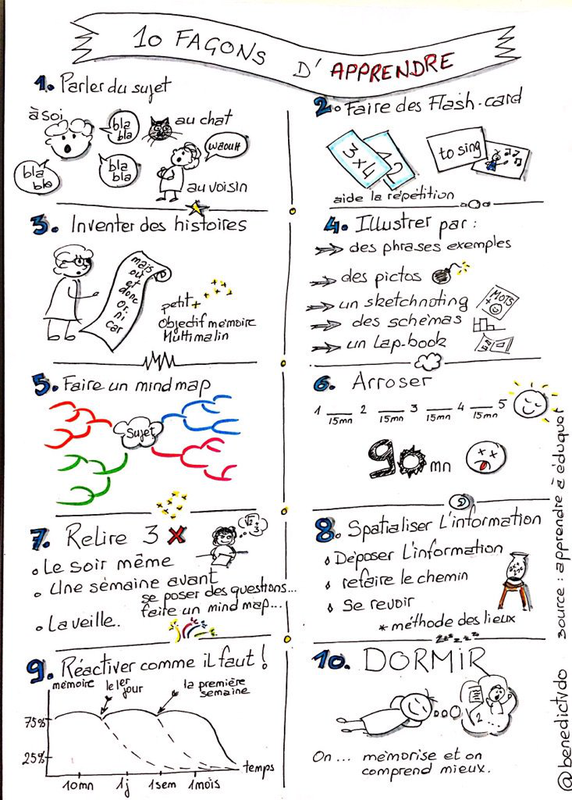 10 FAÇONS D'APPRENDRE
1. Parler du sujet
à soi
bla bla
au chat
bla bla
bla bla
waouh
au voisin
2. Faire des Flash-card
3x4
12
to sing
aide la répétition
3. Inventer des histoires
mais
où
et
donc
or
ni
car
petit +
Objectif mémoire
Multimalin
4. Illustrer par :
des phrases exemples
des pictos
un sketchnoting
MOTS
+
des schémas
un Lap-book
5. Faire un mind map
Sujet
6. Arroser
1 2 3 4 5
15mn 15mn 15mn 15mn
90 mn
7. Relire 3 X
Le soir même
Une semaine avant
se poser des questions...
faire un mind map...
La veille..
8. Spatialiser L'information
Déposer L'information
refaire le chemin
Se revoir
* méthode des lieux
9. Réactiver comme il faut !
mémoire
le 1er jour
la première semaine
75%
25%
temps
10mn 1j 1sem 1mois
zzzzz
10. DORMIR
2...
On ... mémorise et on
comprend mieux.
source : apprendre à éduquer
@benedictvdo